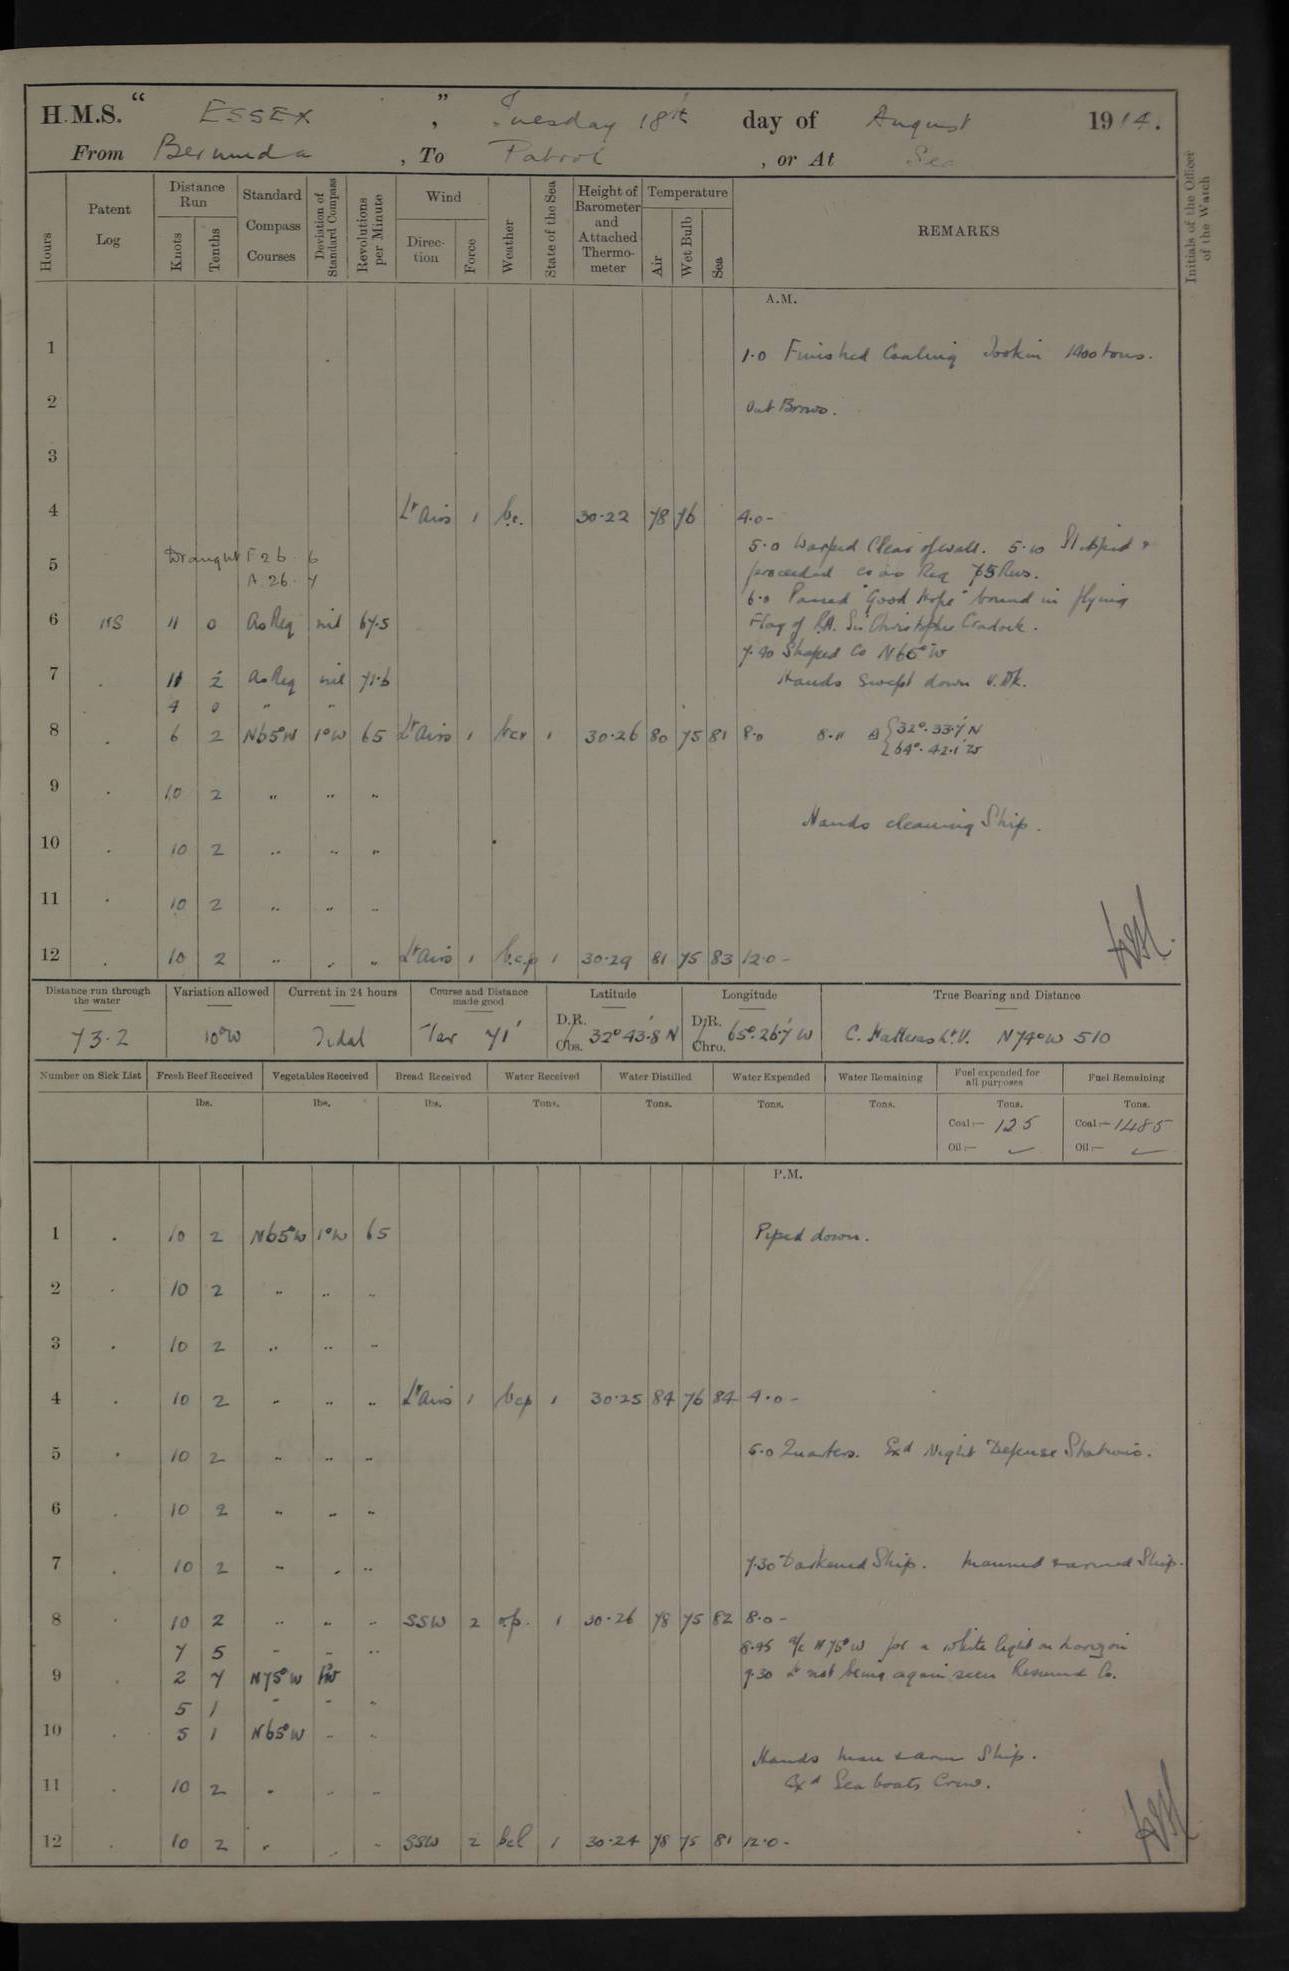 H.M.S. " ESSEX " , Tuesday 18th day of August 1914.
From Bermuda , To Patrol , or At Sea
Hours
Patent Log
Distance Run
Knots
Tenths
Standard Compass Courses
Deviation of Standard Compass
Revolutions per Minute
Wind
Direction
Force
Weather
State of the Sea
Height of Barometer and Attached Thermometer
Temperature
Air
Wet Bulb
Sea
REMARKS
Initials of the Officer of the Watch
A.M.
1 1.0 Finished Coaling Took in 1400 tons.
2 Out Brows.
3
4 Lt Airs 1 b.c. 30.22 78 76 4.0 -
5 Draught F 26. 6 5.0 Warped Clear of wall. 5.10 Slipped &
A. 26. 7 proceeded co as Req 75 Revs.
6.0 Passed "Good Hope" bound in flying
6 NS 11 0 As Req nil 67.5 Flag of R.A. Sir Christopher Cradock.
7.40 Shaped Co N65°W
7 . 11 2 As Req nil 71.6 Hands swept down U.Dk.
4 0 " "
8 . 6 2 N65°W 1°W 65 Lt Airs 1 bcv 1 30.26 80 75 81 8.0 8.11 {32°.33.7' N
{64°.42.1' W
9 . 10 2 " " "
Hands cleaning Ship.
10 . 10 2 " " "
11 . 10 2 " " "
12 . 10 2 " " " Lt Airs 1 b.c.p 1 30.29 81 75 83 12.0 -
Distance run through the water
Variation allowed
Current in 24 hours
Course and Distance made good
Latitude
Longitude
True Bearing and Distance
73.2 10°W Tidal Var 71' D.R. Obs. 32° 43.8' N D.R. Chro. 65°.26.7' W C. Hatteras Lt.V. N74°W 510
Number on Sick List
Fresh Beef Received
Vegetables Received
Bread Received
Water Received
Water Distilled
Water Expended
Water Remaining
Fuel expended for all purposes
Fuel Remaining
lbs. lbs. lbs. Tons. Tons. Tons. Tons. Tons. Tons.
Coal :— 125 Coal :— 1485
Oil :— ✓ Oil :— ✓
P.M.
1 . 10 2 N65°W 1°W 65 Piped down.
2 . 10 2 " " "
3 . 10 2 " " "
4 . 10 2 " " " Lt Airs 1 bcp 1 30.25 84 76 84 4.0 -
5 . 10 2 " " " 5.0 Quarters. Exd Night Defense Stations.
6 . 10 2 " " "
7 . 10 2 " " " 7.30 Darkened Ship. Manned & armed Ship.
8 . 10 2 " " " SSW 2 o.p. 1 30.26 78 75 82 8.0 -
7 5 " " " 8.45 a/c N75°W for a white light on horizon
9 . 2 7 N75°W 9.30 Lt not being again seen Resumed Co.
5 1 " " "
10 . 5 1 N65°W " "
Hands man & arm Ship.
11 . 10 2 " " " Exd Sea boats Crew.
12 . 10 2 " " " SSW 2 bcl 1 30.24 78 75 81 12.0 -